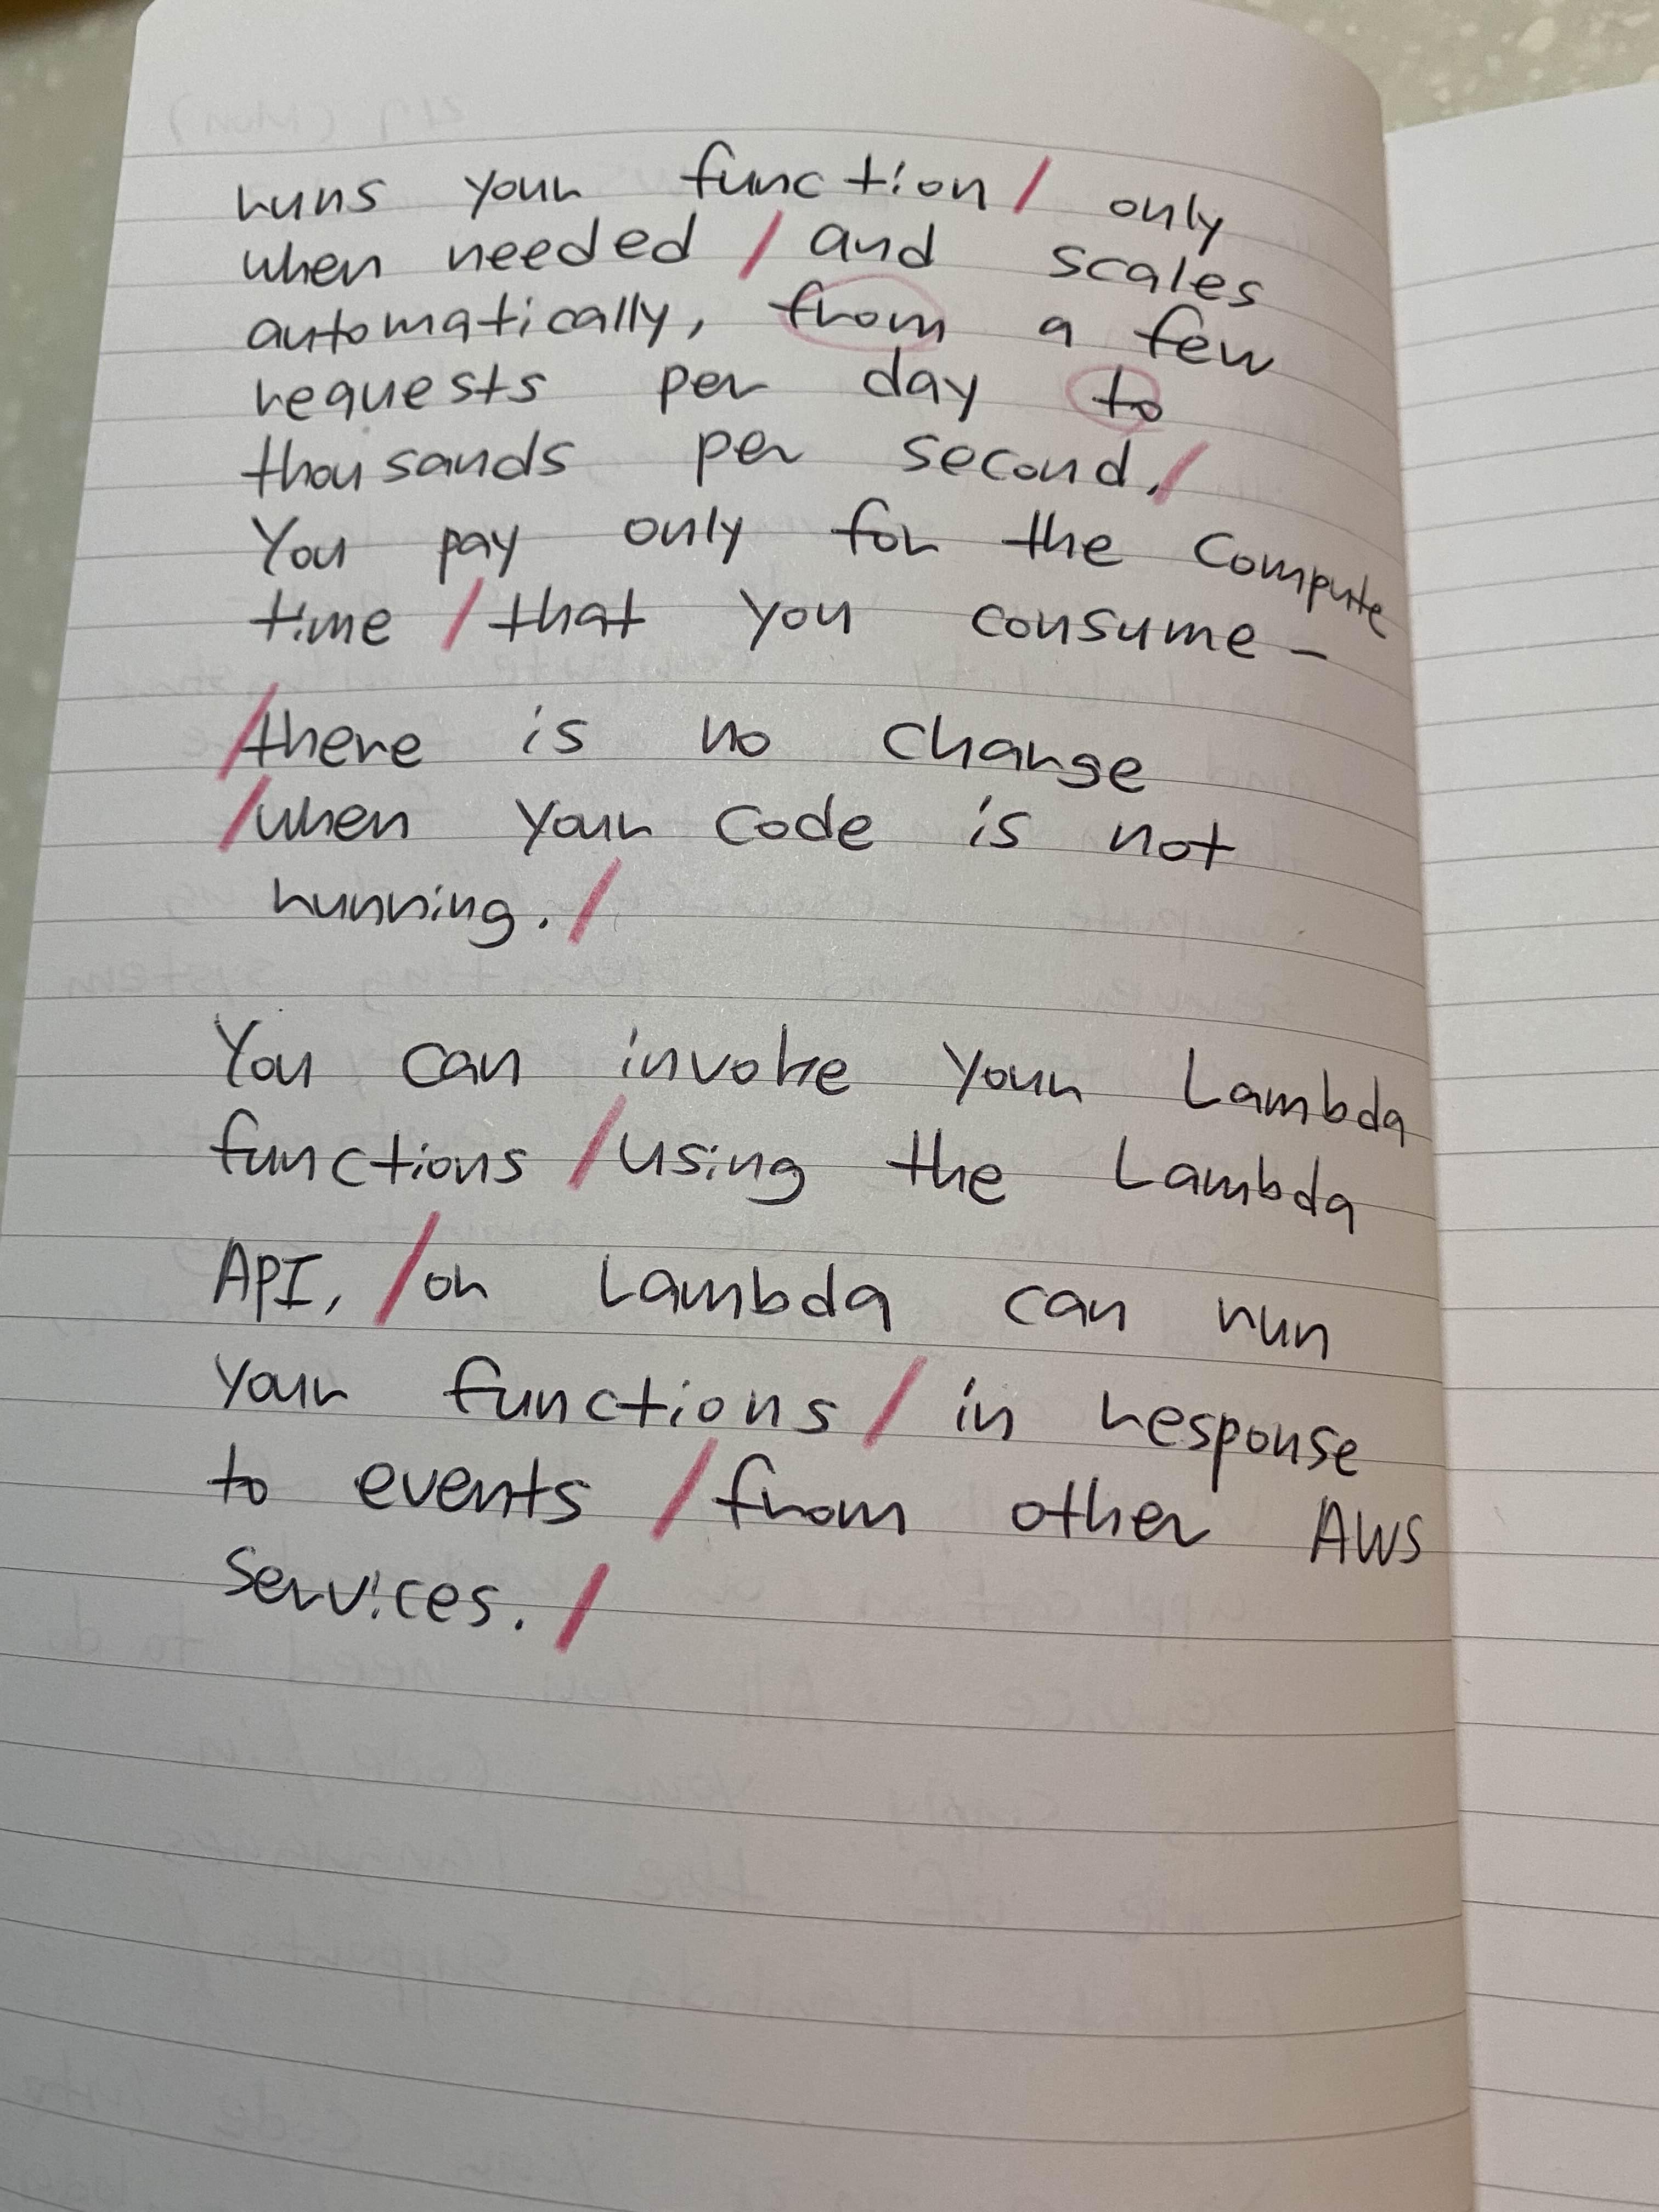 runs your function / only
when needed / and scales
automatically, from a few
requests per day to
thousands per second. /
You pay only for the compute
time / that you consume –
/ there is no charge
/ when your code is not
running. /
You can invoke your Lambda
functions / using the Lambda
API, / or Lambda can run
your functions / in response
to events / from other AWS
services. /